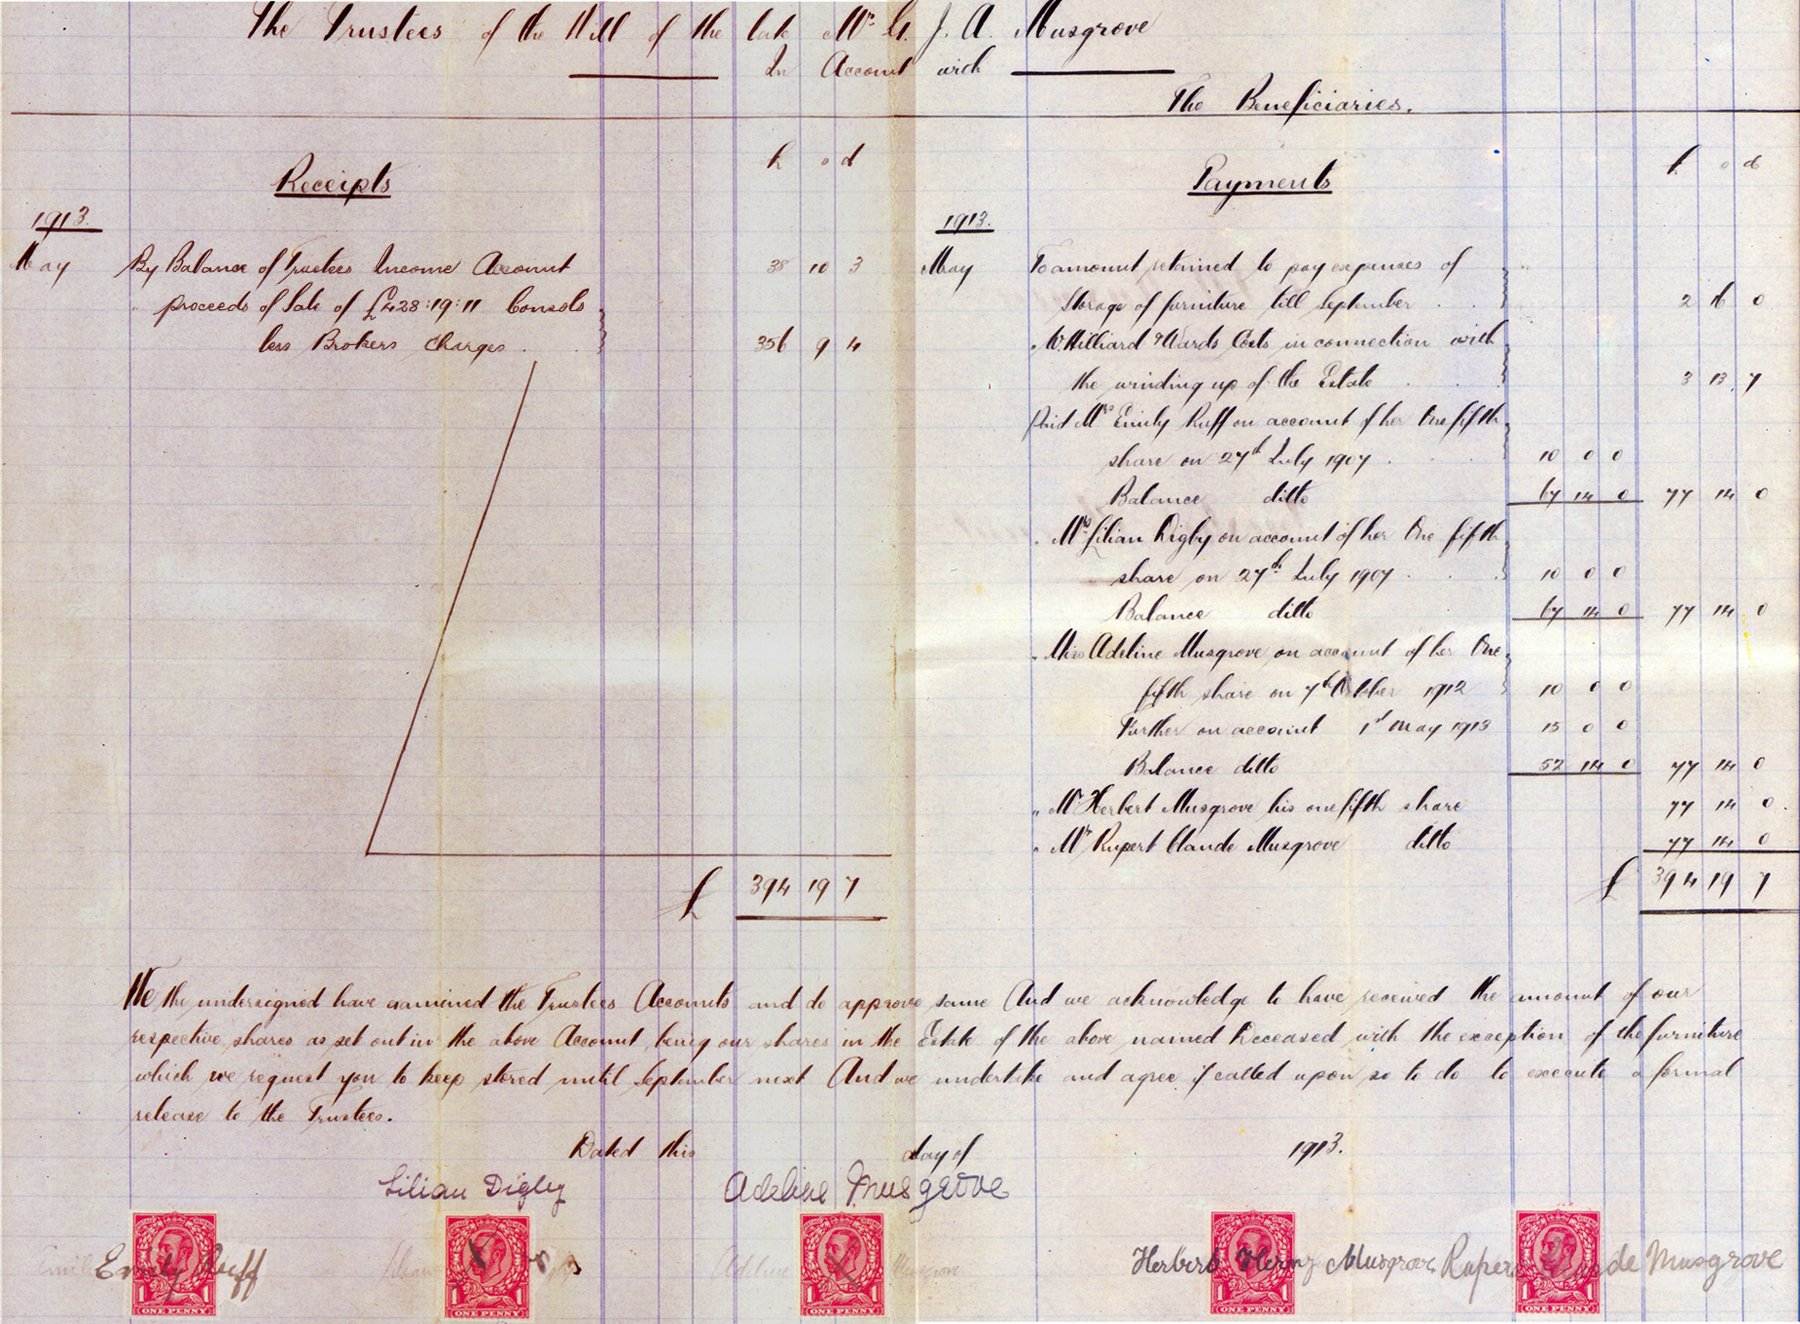 The Trustees of the Will of the late Mr G. J. A. Musgrove
In Account with
The Beneficiaries.
Receipts
£ s d
1913.
May By Balance of Trustees Income Account 38 10 3
" proceeds of Sale of £428:19:11 Consols
less Brokers Charges . 356 9 4
£ 394 19 7
Payments
£ s d
1913.
May To amount retained to pay expenses of
Storage of furniture till September . . 2 16 0
" Hilliard & Wards Costs in connection with
the winding up of the Estate . . 3 13 7
Paid Mrs Emily Ruff on account of her One fifth
share on 27th July 1907 . . 10 0 0
Balance ditto 67 14 0 77 14 0
" Mrs Lilian Digby on account of her One fifth
share on 27th July 1907 . . 10 0 0
Balance ditto 67 14 0 77 14 0
" Miss Adeline Musgrove on account of her One
fifth share on 7th October 1912 10 0 0
Further on account 1st May 1913 15 0 0
Balance ditto 52 14 0 77 14 0
" Mr Herbert Musgrove his one fifth share 77 14 0
" Mr Rupert Claude Musgrove ditto 77 14 0
£ 394 19 7
We the undersigned have examined the Trustees Accounts and do approve same And we acknowledge to have received the amount of our
respective shares as set out in the above Account, being our shares in the Estate of the above named Deceased with the exception of the furniture
which we request you to keep stored until September next And we undertake and agree if called upon so to do to execute a formal
release to the Trustees.
Dated this day of 1913.
Lilian Digby Adeline Musgrove
Emily Ruff Herbert Henry Musgrove Rupert Claude Musgrove
Adeline Musgrove
1 ONE PENNY 1
1 ONE PENNY 1
1 ONE PENNY 1
1 ONE PENNY 1
1 ONE PENNY 1